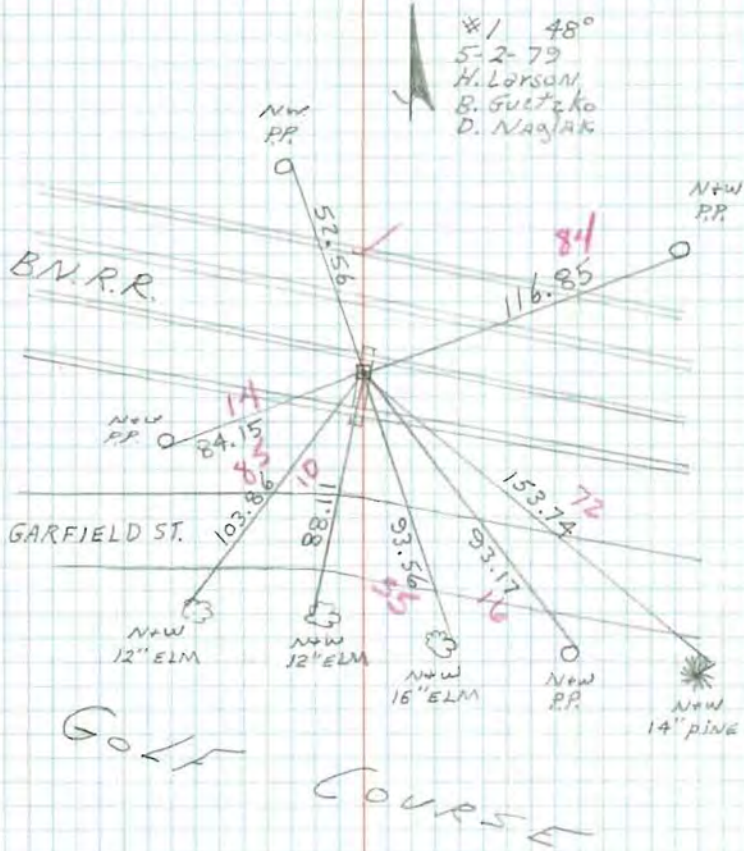 #1 48°
5-2-79
H. Larson
B. Guetzko
D. Naglak
N+W
P.P.
N+W
P.P.
52.56
84
116.85
B.N.R.R.
14
N+W
P.P.
84.15
85
103.86
10
111.88
93.56
55
93.17
16
153.74
72
GARFIELD ST.
N+W
12" ELM
N+W
12" ELM
N+W
16" ELM
N+W
P.P.
N+W
14" PINE
GOLF
COURSE